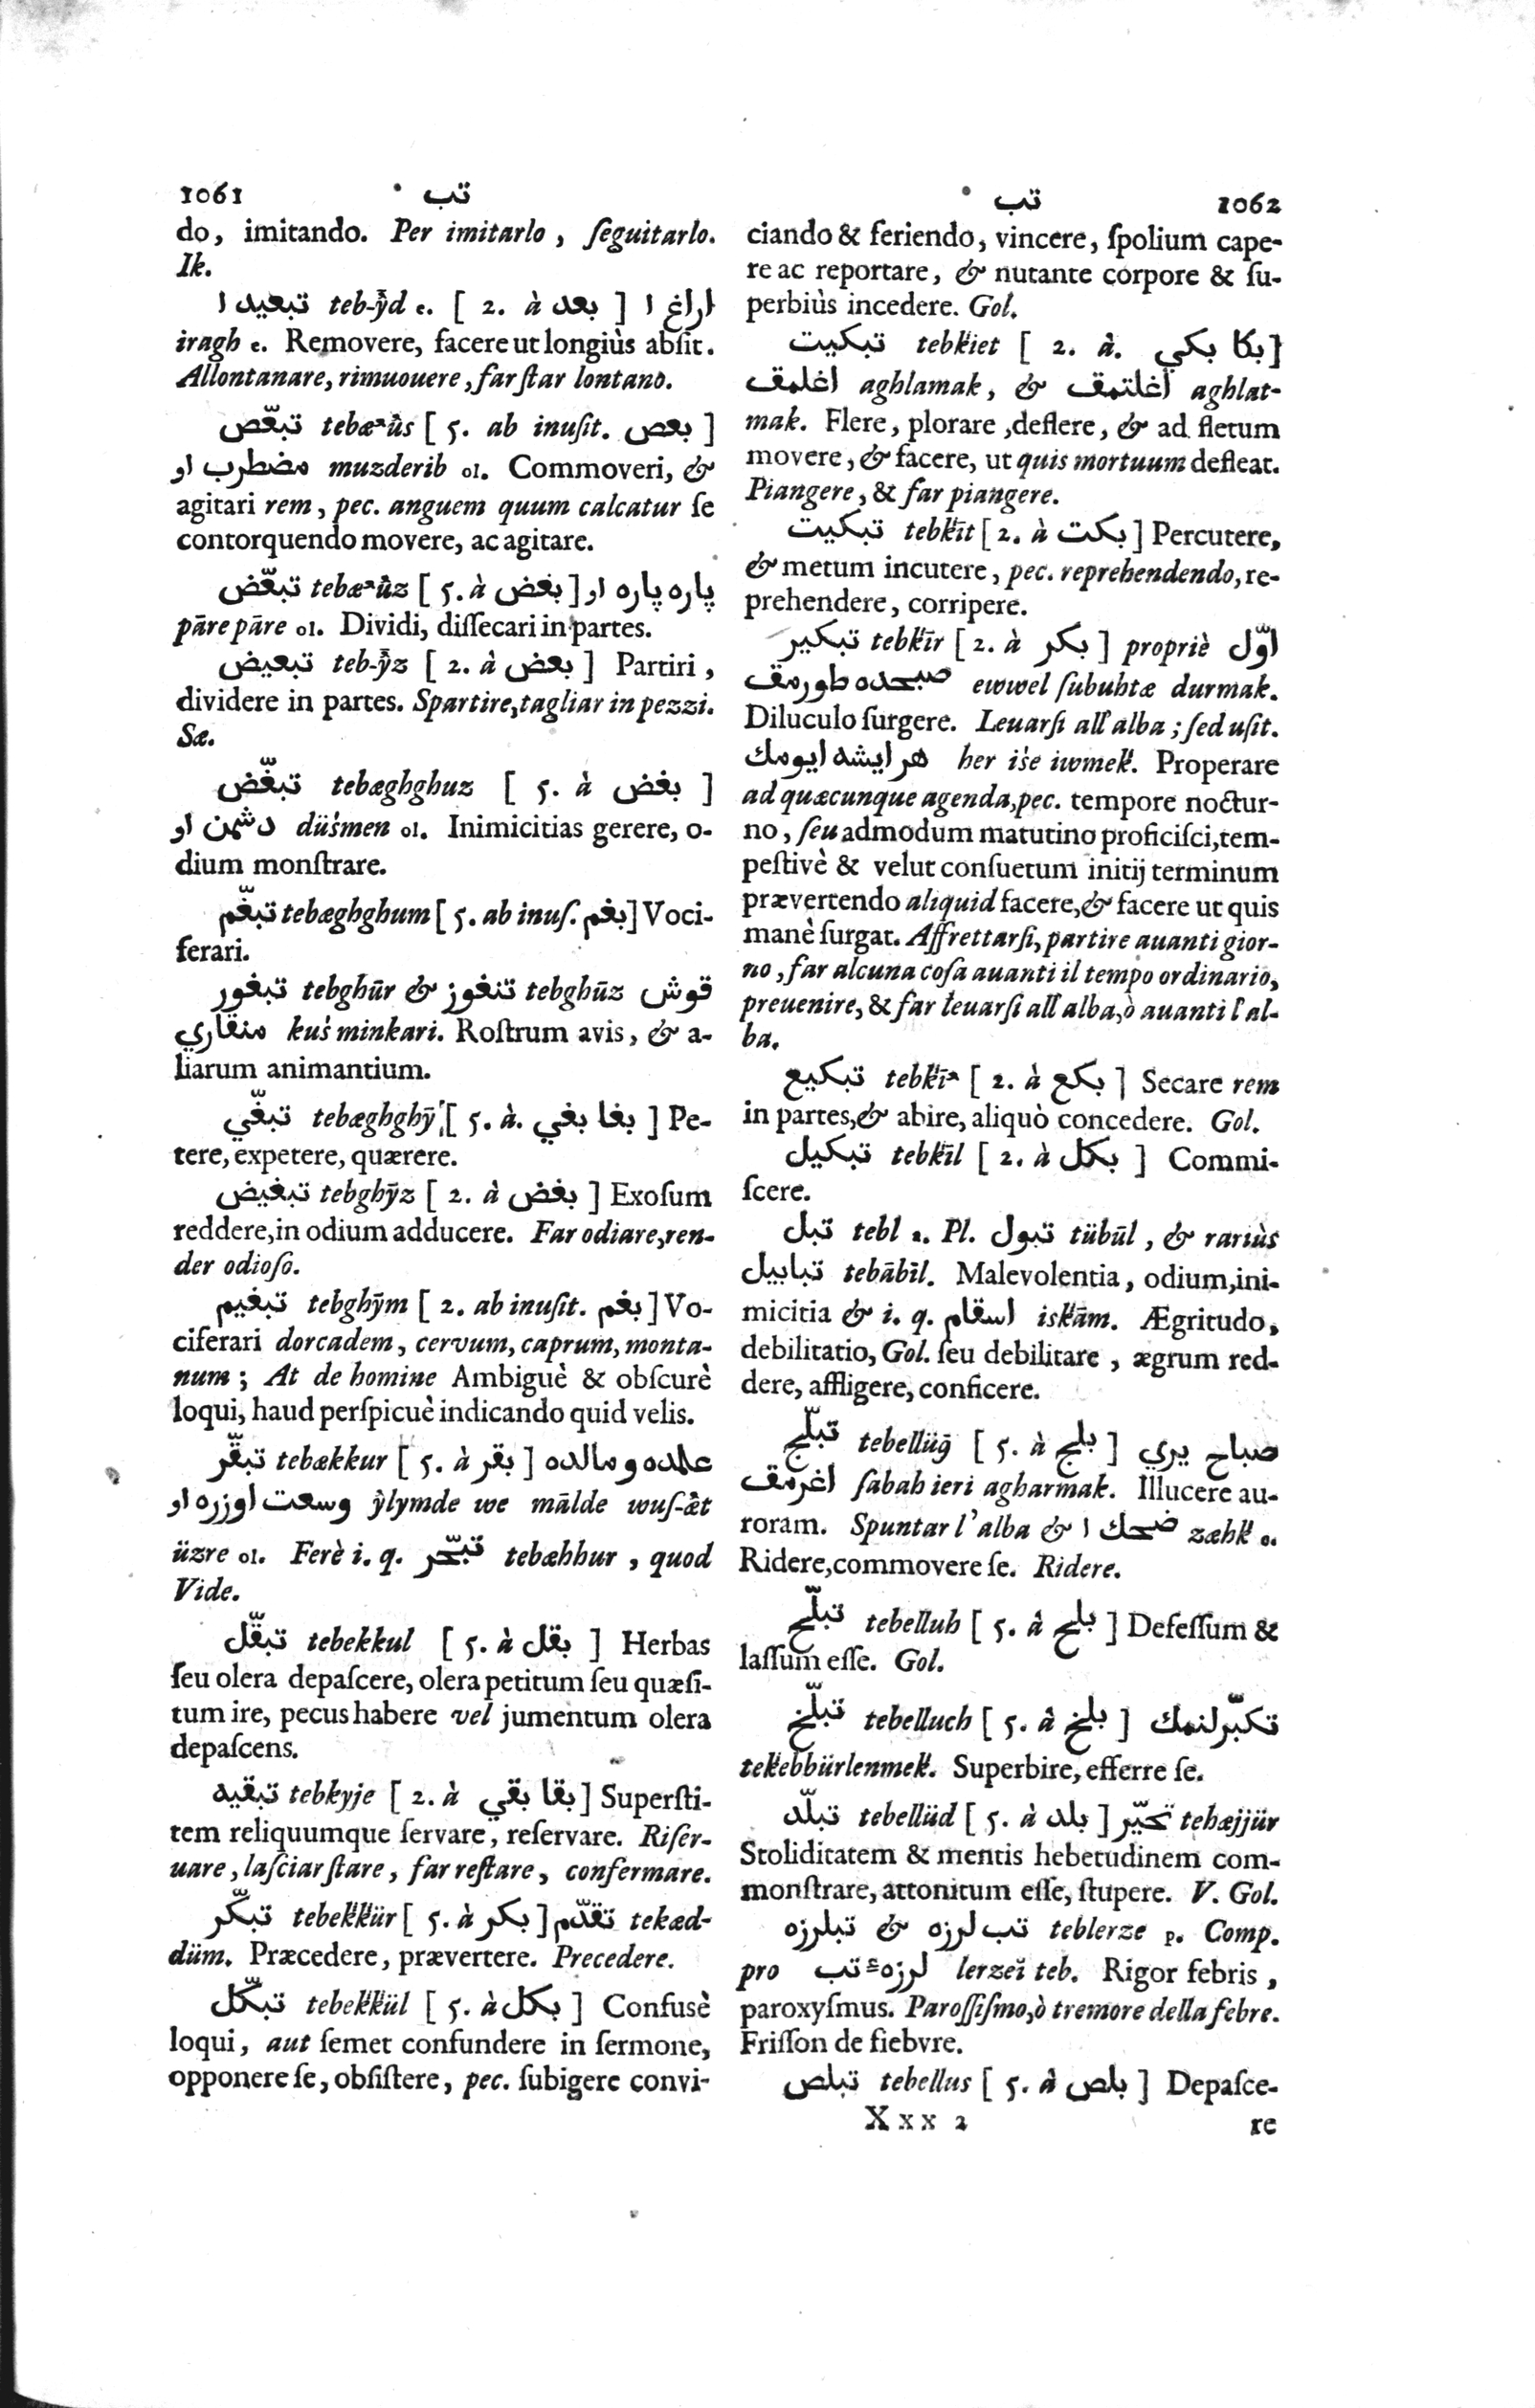 1061 تب
do, imitando. Per imitarlo, ſeguitarlo.
Ik.
تبعيد ا teb-ỹd e. [ 2. à بعد ] اراغ ا
iragh e. Removere, facere ut longiùs abſit.
Allontanare, rimuouere, far ſtar lontano.
تبعّص [ 5. ab inuſit. بعص ]
مضطرب او muzderib ol. Commoveri, &
agitari rem, pec. anguem quum calcatur ſe
contorquendo movere, ac agitare.
تبعّض [ 5. à بعض ] پاره پاره او
pāre pāre ol. Dividi, diſſecari in partes.
تبعيض teb-ỹz [ 2. à بعض ] Partiri,
dividere in partes. Spartire, tagliar in pezzi.
Sæ.
تبغّض tebæghghuz [ 5. à بغض ]
دشمن او düśmen ol. Inimicitias gerere, o-
dium monſtrare.
تبغّم tebæghghum [ 5. ab inuſ. بغم ] Voci-
ferari.
تبغور tebghūr & تنغوز tebghūz قوش
منقاري kuś minkari. Roſtrum avis, & a-
liarum animantium.
تبغّي tebæghghȳ [ 5. à. بغا بغي ] Pe-
tere, expetere, quærere.
تبغيض tebghȳz [ 2. à بغض ] Exoſum
reddere, in odium adducere. Far odiare, ren-
der odioſo.
تبغيم tebghȳm [ 2. ab inuſit. بغم ] Vo-
ciferari dorcadem, cervum, caprum, monta-
num; At de homine Ambiguè & obſcurè
loqui, haud perſpicuè indicando quid velis.
تبقّر tebækkur [ 5. à بقر ] علمده و مالده
وسعت اوزره او ỳlymde we mālde wuſ-ât
üzre ol. Ferè i. q. تبحّر tebæhhur, quod
Vide.
تبقّل tebekkul [ 5. à بقل ] Herbas
ſeu olera depaſcere, olera petitum ſeu quæſi-
tum ire, pecus habere vel jumentum olera
depaſcens.
تبقيه tebkyje [ 2. à بقا بقي ] Superſti-
tem reliquumque ſervare, reſervare. Riſer-
uare, laſciar ſtare, far reſtare, confermare.
تبكّر tebekkür [ 5. à بكر ] تقدّم tekæd-
düm. Præcedere, prævertere. Precedere.
تبكّل tebekkül [ 5. à بكل ] Confusè
loqui, aut ſemet confundere in ſermone,
opponere ſe, obſiſtere, pec. ſubigere convi-
تب 1062
ciando & feriendo, vincere, ſpolium cape-
re ac reportare, & nutante corpore & ſu-
perbiùs incedere. Gol.
تبكيت tebkiet [ 2. à. بكا بكي ]
اغلمق aghlamak, & اغلتمق aghlat-
mak. Flere, plorare, deflere, & ad fletum
movere, & facere, ut quis mortuum defleat.
Piangere, & far piangere.
تبكيت tebkīt [ 2. à بكت ] Percutere,
& metum incutere, pec. reprehendendo, re-
prehendere, corripere.
تبكير tebkīr [ 2. à بكر ] propriè اوّل
صبحده طورمق ewwel ſubuhtæ durmak.
Diluculo ſurgere. Leuarſi all' alba; ſed uſit.
هر ايشه ايومك her iśe iwmek. Properare
ad quæcunque agenda, pec. tempore noctur-
no, ſeu admodum matutino proficiſci, tem-
peſtivè & velut conſuetum initij terminum
prævertendo aliquid facere, & facere ut quis
manè ſurgat. Affrettarſi, partire auanti gior-
no, far alcuna coſa auanti il tempo ordinario,
preuenire, & far leuarſi all' alba, ò auanti l'al-
ba.
تبكيع [ 2. à بكع ] Secare rem
in partes, & abire, aliquò concedere. Gol.
تبكيل tebkīl [ 2. à بكل ] Commi-
ſcere.
تبل tebl a. Pl. تبول tübūl, & rariùs
تبابيل tebābīl. Malevolentia, odium, ini-
micitia & i. q. اسقام iskām. Ægritudo,
debilitatio, Gol. ſeu debilitare, ægrum red-
dere, affligere, conficere.
تبلّج tebellüǧ [ 5. à بلج ] صباح يري
اغرمق ſabah ieri agharmak. Illucere au-
roram. Spuntar l'alba & ضحك ا zæhk o.
Ridere, commovere ſe. Ridere.
تبلّح tebelluh [ 5. à بلح ] Defeſſum &
laſſum eſſe. Gol.
تبلّخ tebelluch [ 5. à بلخ ] تكبّرلنمك
tekebbürlenmek. Superbire, efferre ſe.
تبلّد tebellüd [ 5. à بلد ] تحيّر tehæjjür
Stoliditatem & mentis hebetudinem com-
monſtrare, attonitum eſſe, ſtupere. V. Gol.
تبلرزه & تب لرزه teblerze p. Comp.
pro لرزهٔ تب lerzeï teb. Rigor febris,
paroxyſmus. Paroſſiſmo, ò tremore della febre.
Friſſon de fiebvre.
تبلص tebellus [ 5. à بلص ] Depaſce-
Xxx 2 re